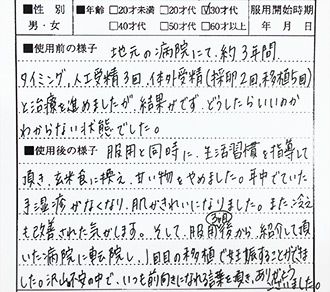 ■性別 ■年齢 □20才未満 □20才代 ☑30才代 ■服用開始時期
男・女 □40才代 □50才代 □60才以上 年 月 日
■使用前の様子 地元の病院にて、約3年間
タイミング、人工受精3回、体外受精(採卵2回、移植5回)
と治療を進めましたが、結果がでず、どうしたらいいのか
わからない状態でした。
■使用後の様子 服用と同時に、生活習慣を指導して
頂き、玄米食に換え、甘い物をやめました。年中でていた
手湿疹がなくなり、肌がきれいになりました。また冷えも
改善された気がします。そして、服用3ヶ月後から、紹介して頂
いた病院に転院し、1回目の移植で妊娠することができま
した。沢山不安の中で、いつも前向きになれる言葉を頂き、ありがとう
ございました。